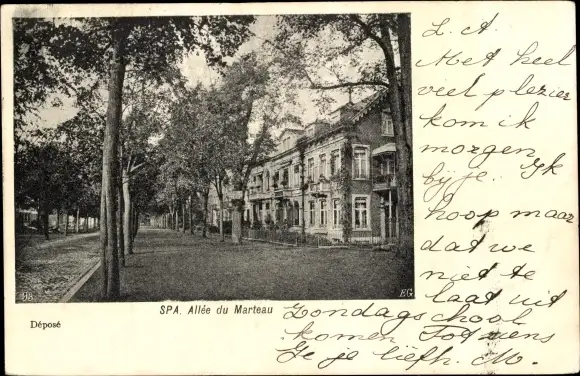 L. A.
Met heel
veel plezier
kom ik
morgen
bij je. Ik
hoop maar
dat we
niet te
laat uit
Zondagschool
komen Tot ziens
je liefh. M.
98
EG
SPA. Allée du Marteau
Déposé